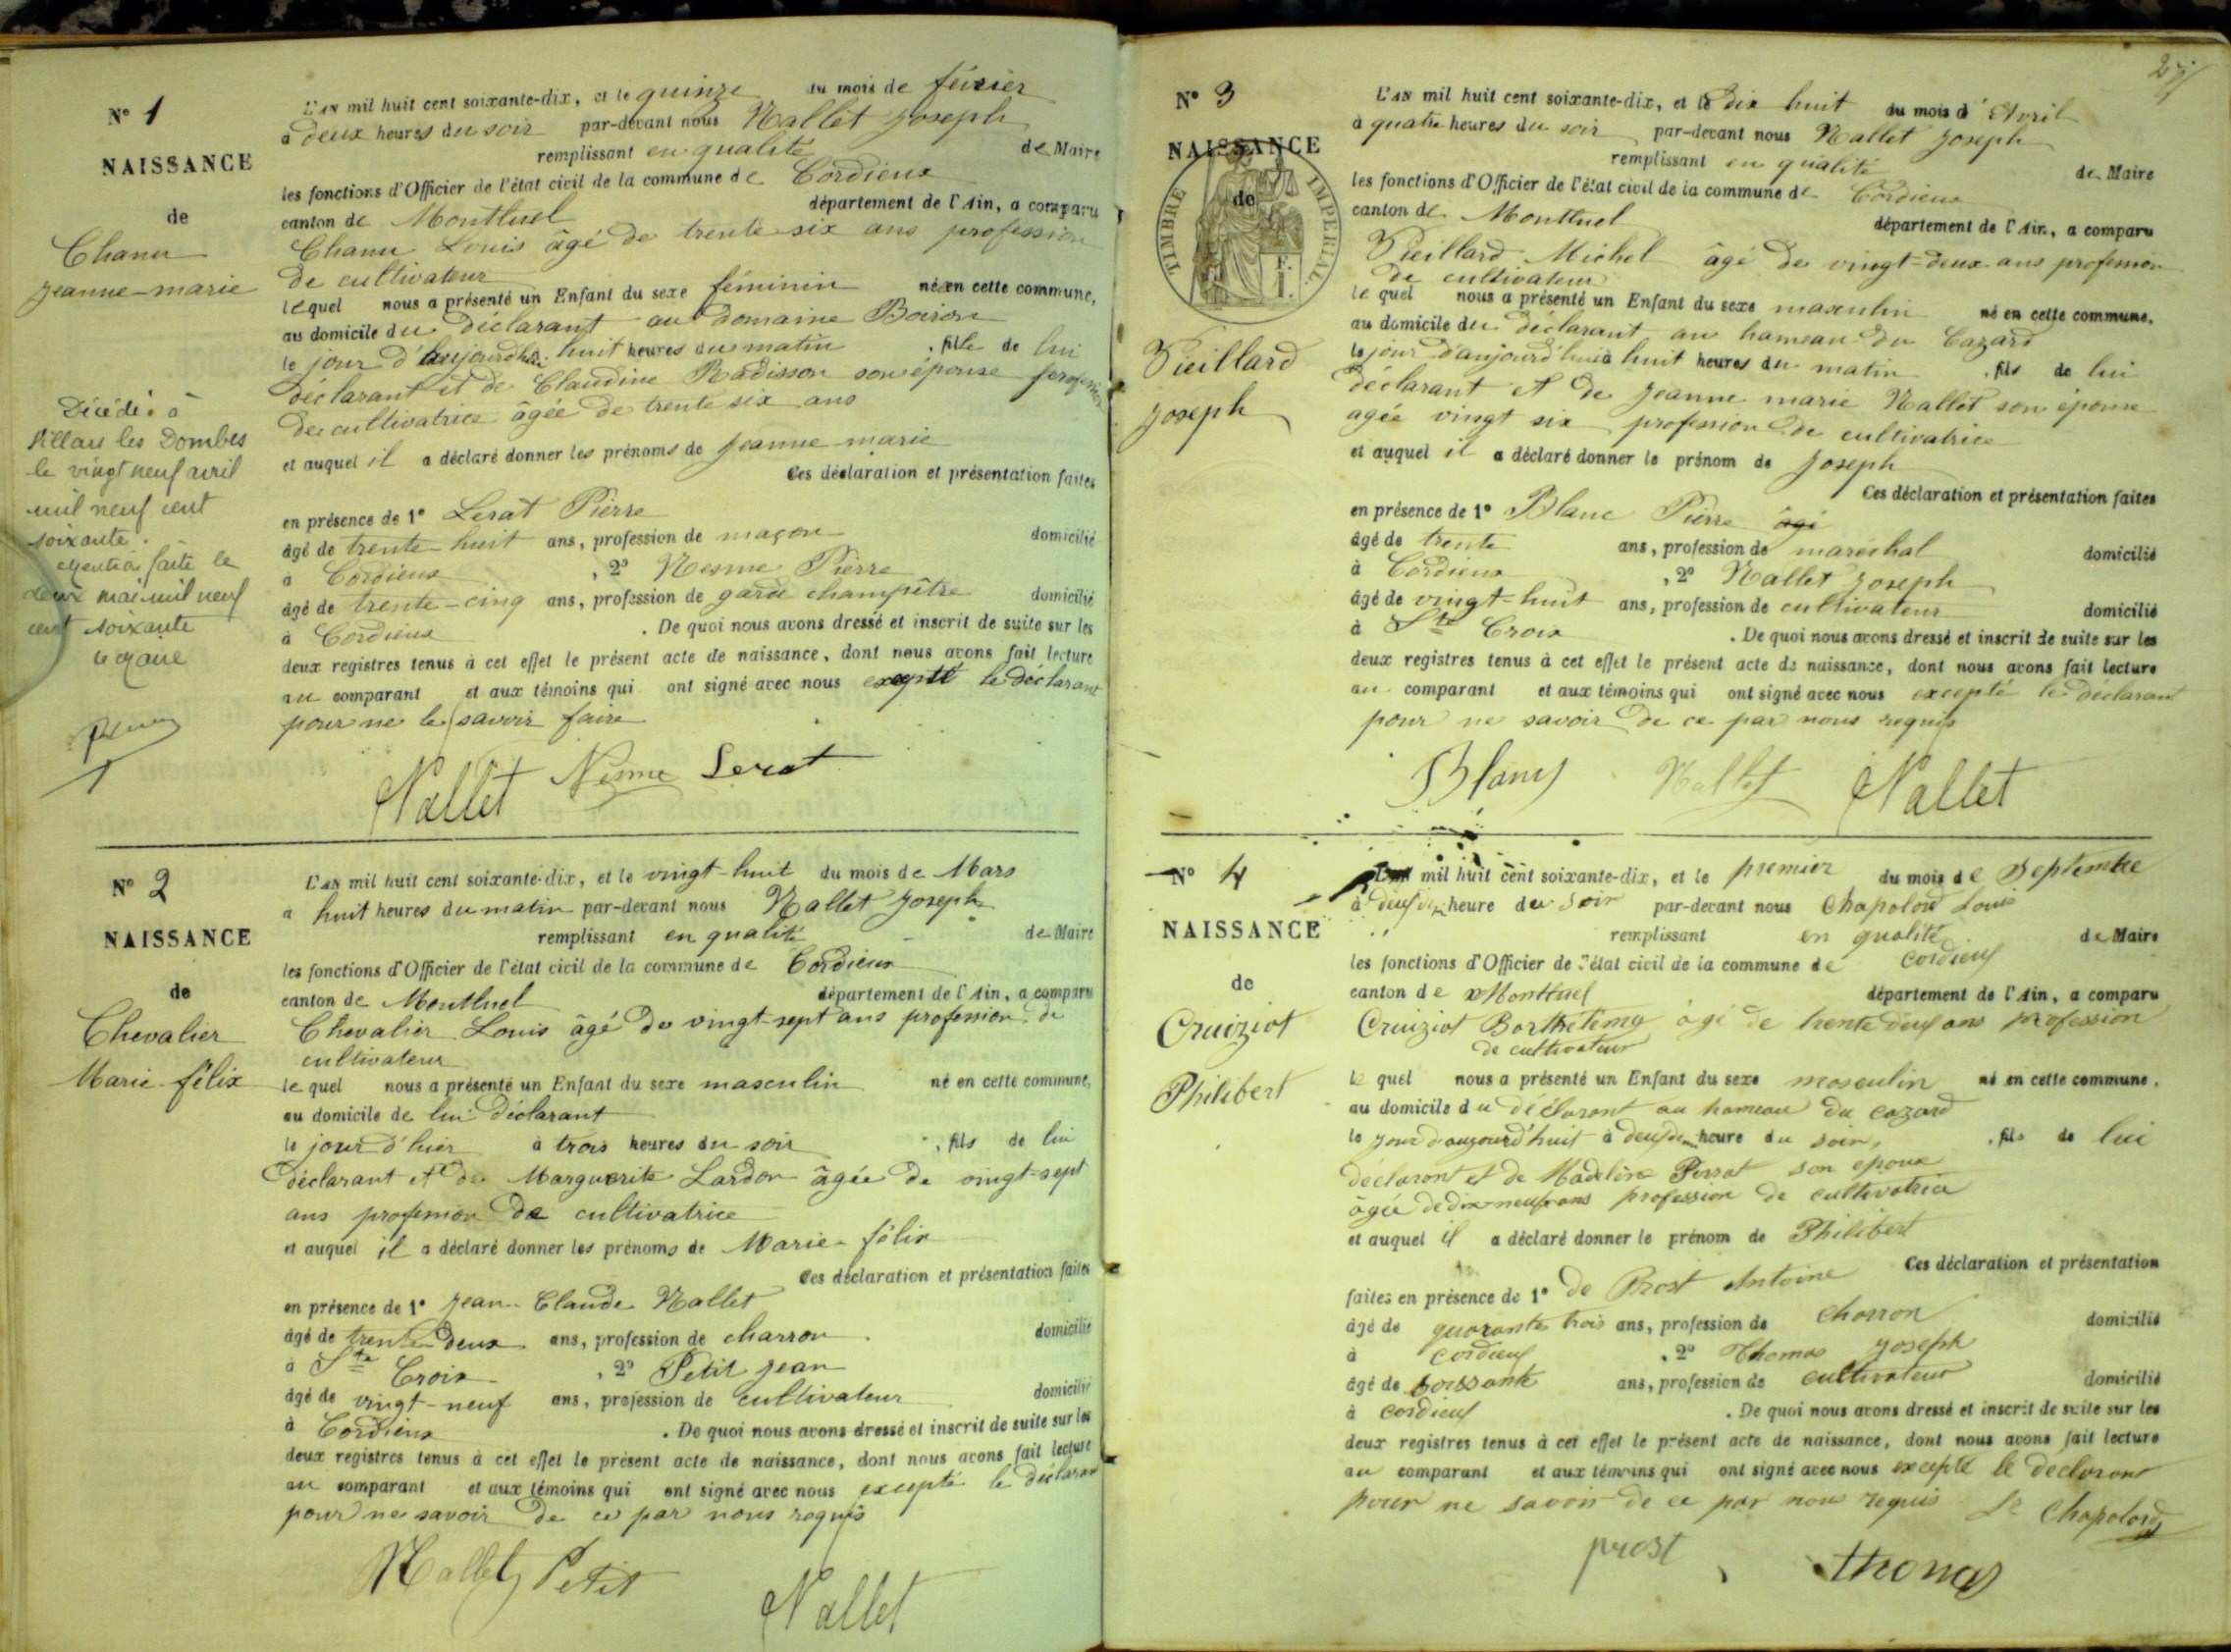 N° 1
NAISSANCE
de
Chanu
Jeanne-marie
L'AN mil huit cent soixante-dix, et le quinze du mois de février
à deux heures du soir par-devant nous Nallet Joseph
remplissant en qualité de Maire
les fonctions d'Officier de l'état civil de la commune de Cordieux
canton de Montluel département de l'Ain, a comparu
Chanu Louis âgé de trente six ans profession
de cultivateur
lequel nous a présenté un Enfant du sexe féminin né en cette commune,
au domicile du déclarant au domaine Boiron
le jour d'aujourd'hui huit heures du matin , fille de lui
déclarant et de Claudine Radisson son épouse profession
de cultivatrice âgée de trente six ans
et auquel il a déclaré donner les prénoms de Jeanne marie
Ces déclaration et présentation faites
en présence de 1° Lerat Pierre
âgé de trente-huit ans, profession de maçon domicilié
à Cordieux , 2° Nesme Pierre
âgé de trente-cinq ans, profession de garde champêtre domicilié
à Cordieux . De quoi nous avons dressé et inscrit de suite sur les
deux registres tenus à cet effet le présent acte de naissance, dont nous avons fait lecture
au comparant et aux témoins qui ont signé avec nous excepté le déclarant
pour ne le savoir faire
Nallet Nesme Lerat
Décédée à
Villars les Dombes
le vingt neuf avril
mil neuf cent
soixante.
Mention faite le
deux mai mil neuf
cent soixante
le Maire
N° 2
NAISSANCE
de
Chevalier
Marie félix
L'AN mil huit cent soixante-dix, et le vingt-huit du mois de Mars
à huit heures du matin par-devant nous Nallet Joseph
remplissant en qualité de Maire
les fonctions d'Officier de l'état civil de la commune de Cordieux
canton de Montluel département de l'Ain, a comparu
Chevalier Louis âgé de vingt-sept ans profession de
cultivateur
le quel nous a présenté un Enfant du sexe masculin né en cette commune,
au domicile de lui déclarant
le jour d'hier à trois heures du soir , fils de lui
déclarant et de Marguerite Lardon âgée de vingt-sept
ans profession de cultivatrice
et auquel il a déclaré donner les prénoms de Marie félix
Ces déclaration et présentation faites
en présence de 1° Jean Claude Nallet
âgé de trente deux ans, profession de charron domicilié
à Ste Croix , 2° Petit Jean
âgé de vingt-neuf ans, profession de cultivateur domicilié
à Cordieux . De quoi nous avons dressé et inscrit de suite sur les
deux registres tenus à cet effet le présent acte de naissance, dont nous avons fait lecture
au comparant et aux témoins qui ont signé avec nous excepté le déclarant
pour ne savoir de ce par nous requis
Nallet Petit
Nallet
27
N° 3
NAISSANCE
de
TIMBRE IMPERIAL
F.
1.
Vieillard
Joseph
L'AN mil huit cent soixante-dix, et le dix huit du mois d'Avril
à quatre heures du soir par-devant nous Nallet Joseph
remplissant en qualité de Maire
les fonctions d'Officier de l'état civil de la commune de Cordieux
canton de Montluel département de l'Ain, a comparu
Vieillard Michel âgé de vingt-deux ans profession
de cultivateur
le quel nous a présenté un Enfant du sexe masculin né en cette commune,
au domicile du déclarant au hameau du Cazard
le jour d'aujourd'hui à huit heures du matin , fils de lui
déclarant et de Jeanne marie Nallet son épouse
agée vingt six profession de cultivatrice
et auquel il a déclaré donner le prénom de Joseph
Ces déclaration et présentation faites
en présence de 1° Blanc Pierre âgé
âgé de trente ans, profession de maréchal domicilié
à Cordieux , 2° Nallet Joseph
âgé de vingt-huit ans, profession de cultivateur domicilié
à Ste Croix . De quoi nous avons dressé et inscrit de suite sur les
deux registres tenus à cet effet le présent acte de naissance, dont nous avons fait lecture
au comparant et aux témoins qui ont signé avec nous excepté le déclarant
pour ne savoir de ce par nous requis
Blanc Nallet Nallet
N° 4
NAISSANCE
de
Cruiziot
Philibert
L'AN mil huit cent soixante-dix, et le premier du mois de Septembre
à heure du soir par-devant nous Chapolard Louis
remplissant en qualité de Maire
les fonctions d'Officier de l'état civil de la commune de Cordieux
canton de Montluel département de l'Ain, a comparu
Cruiziot Barthélemy âgé de trente deux ans profession
de cultivateur
le quel nous a présenté un Enfant du sexe masculin né en cette commune,
au domicile du déclarant au hameau du cazard
le jour d'aujourd'huit à heure du soir, , fils de lui
déclarant et de Madeleine Perrat son epouse
âgée de dix neuf ans profession de cultivatrice
et auquel il a déclaré donner le prénom de Philibert
Ces déclaration et présentation
faites en présence de 1° de Prost Antoine
âgé de quarante trois ans, profession de charron domicilié
à cordieux , 2° Thomas Joseph
âgé de soissante ans, profession de cultivateur domicilié
à cordieux . De quoi nous avons dressé et inscrit de suite sur les
deux registres tenus à cet effet le présent acte de naissance, dont nous avons fait lecture
au comparant et aux témoins qui ont signé avec nous excepté le declarant
pour ne savoir de ce par nous requis Ls Chapolard
prost thomas